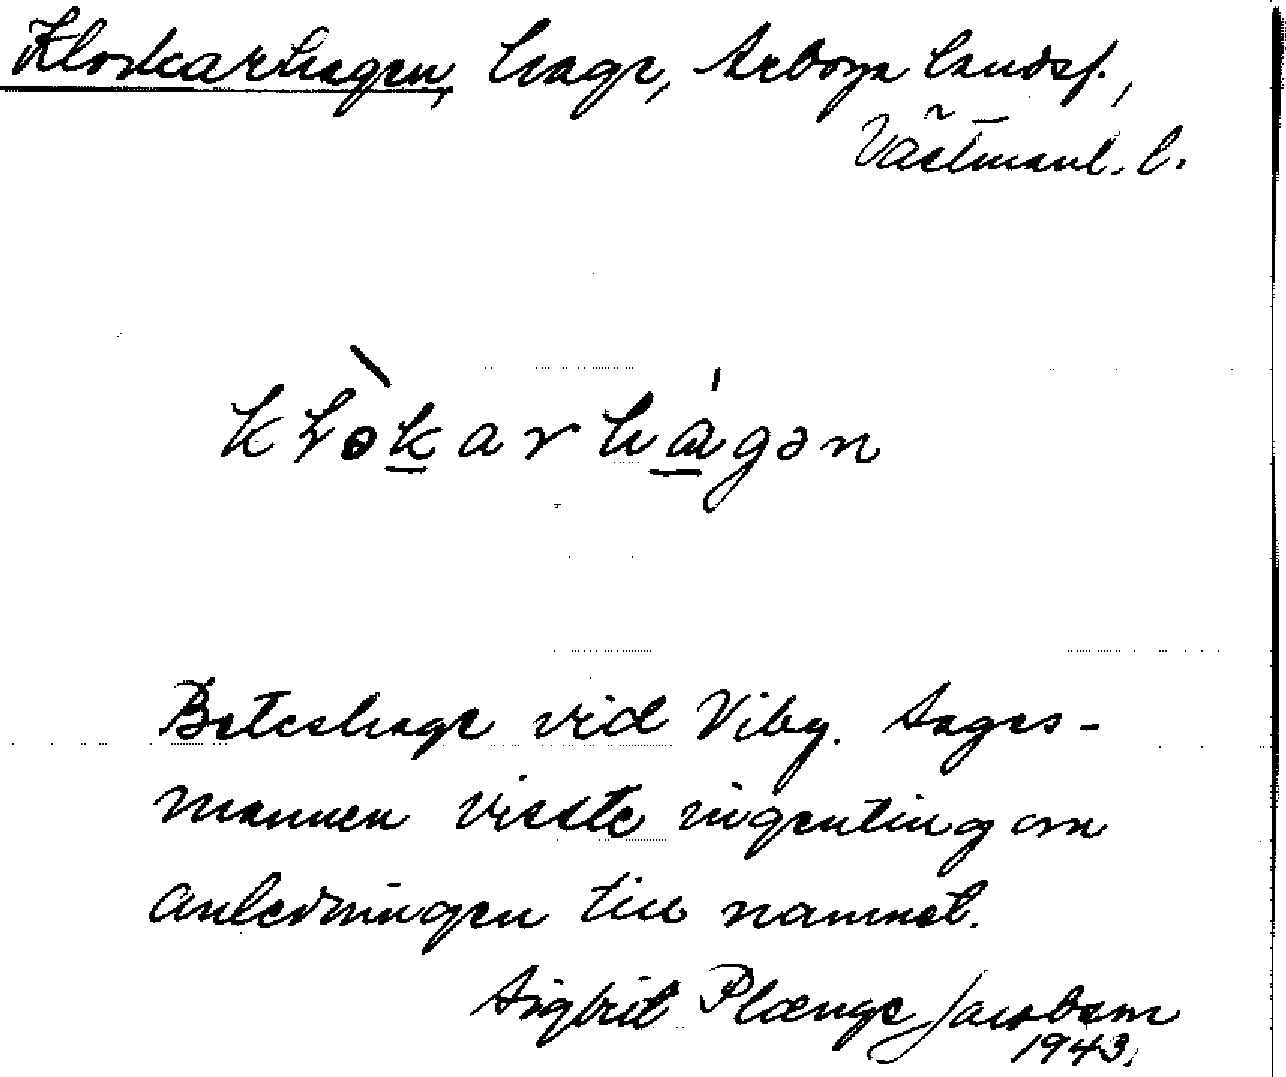 Klockarhagen, hage, Arboga landsf.,
Västmanl. l.
Beteshage vid Viby. Sages-
mannen visste ingenting om
anledningen till namnet.
Sigbrit Plænge Jacobson
1943.